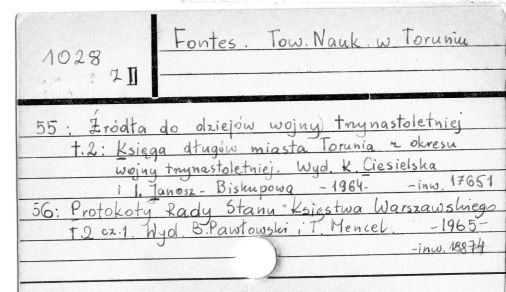 Fontes. Tow. Nauk. w Toruniu
1028
z II
55: Źródła do dziejów wojny trzynastoletniej
t.2: Księga długów miasta Torunia z okresu
wojny trzynastoletniej. Wyd. K. Ciesielska
i I. Janosz-Biskupowa -1964- -inw. 17651
56: Protokoły Rady Stanu Księstwa Warszawskiego
T.2 cz.1. Wyd. B. Pawłowski i T. Mencel. -1965-
-inw. 18874